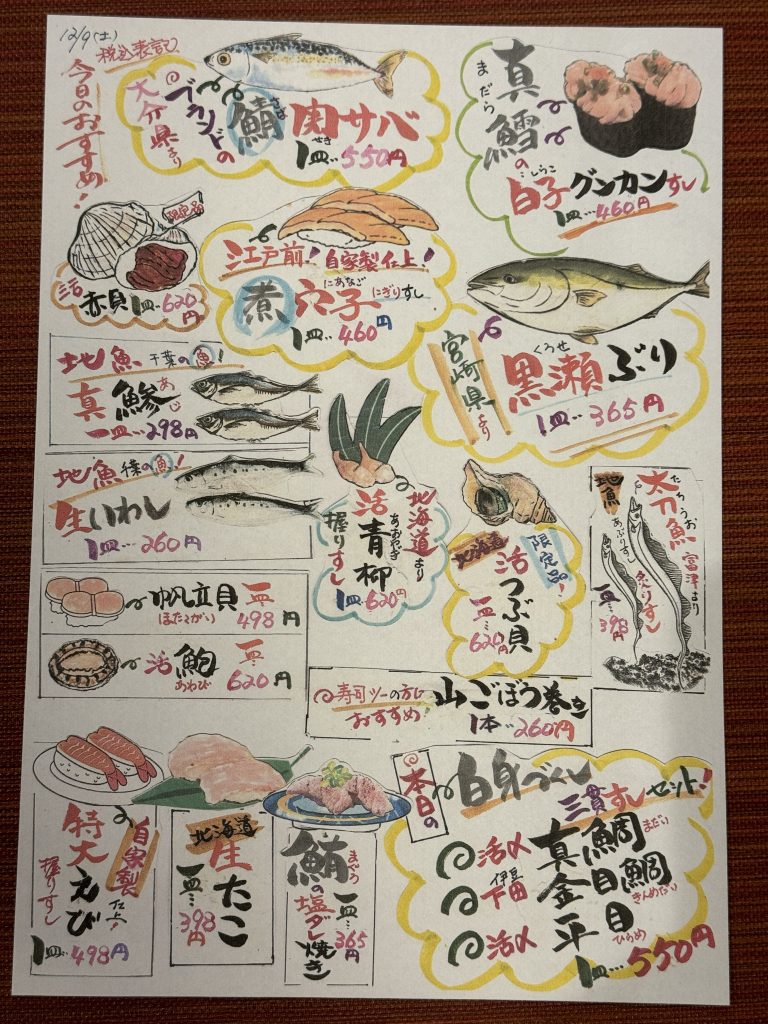 12/9(土)
税込表記
今日のおすすめ!
大分県より
ブランドの
鯖
さば
関サバ
せき
1皿…550円
真鱈の
まだら
白子グンカンすし
しらこ
1皿…460円
限定品
活赤貝1皿…620円
江戸前!自家製仕上!
煮穴子にぎりすし
にあなご
1皿…460円
宮崎県より
黒瀬ぶり
くろせ
1皿…365円
地魚千葉の魚!
真鯵
あじ
一皿…298円
地魚千葉の魚!
生いわし
1皿…260円
北海道より
活青柳
あおやぎ
握りすし
1皿…620円
限定品!
北海道
活つぶ貝
一皿…620円
地魚
太刀魚
たちうお
富津より
炙りすし
あぶりすし
一皿…398円
帆立貝
ほたてがい
一皿…498円
活鮑
あわび
一皿…620円
寿司ツーの方に
おすすめ!
山ごぼう巻き
1本…260円
自家製仕上!
特大えび
握りすし
1皿…498円
北海道
生たこ
一皿…398円
鮪の塩ダレ焼き
まぐろ
一皿…365円
本日の
白身づくし
三貫すしセット!
活〆真鯛
まだい
伊豆下田金目鯛
きんめだい
活〆平目
ひらめ
1皿…550円